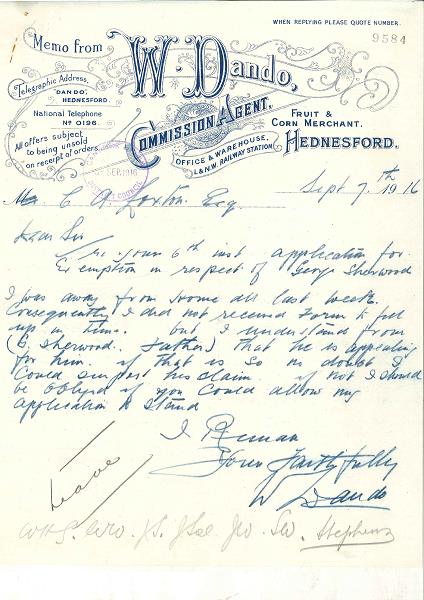 WHEN REPLYING PLEASE QUOTE NUMBER.
9584
Memo from
W. Dando,
Telegraphic Address,
"DANDO",
HEDNESFORD.
National Telephone
No 0196.
All offers subject
to being unsold
on receipt of orders.
COMMISSION AGENT.
FRUIT &
CORN MERCHANT.
OFFICE & WAREHOUSE,
L & N.W. RAILWAY STATION.
HEDNESFORD.
SEP. 1916
Sept 7th 1916
C A Loxton Esq
Dear Sir
re your 6th inst application for
Exemption in respect of George Sherwood
I was away from home all last week.
Consequently I did not received Form to fill
up in time. but I understand from
(G. Sherwood. Father) that he is appealing
for him. if that is so no doubt I
Could support his claim. if not I should
be oblged if you Could allow my
application to stand
I Reman
Yours Faithfully
W Dando
Leave
Stephens